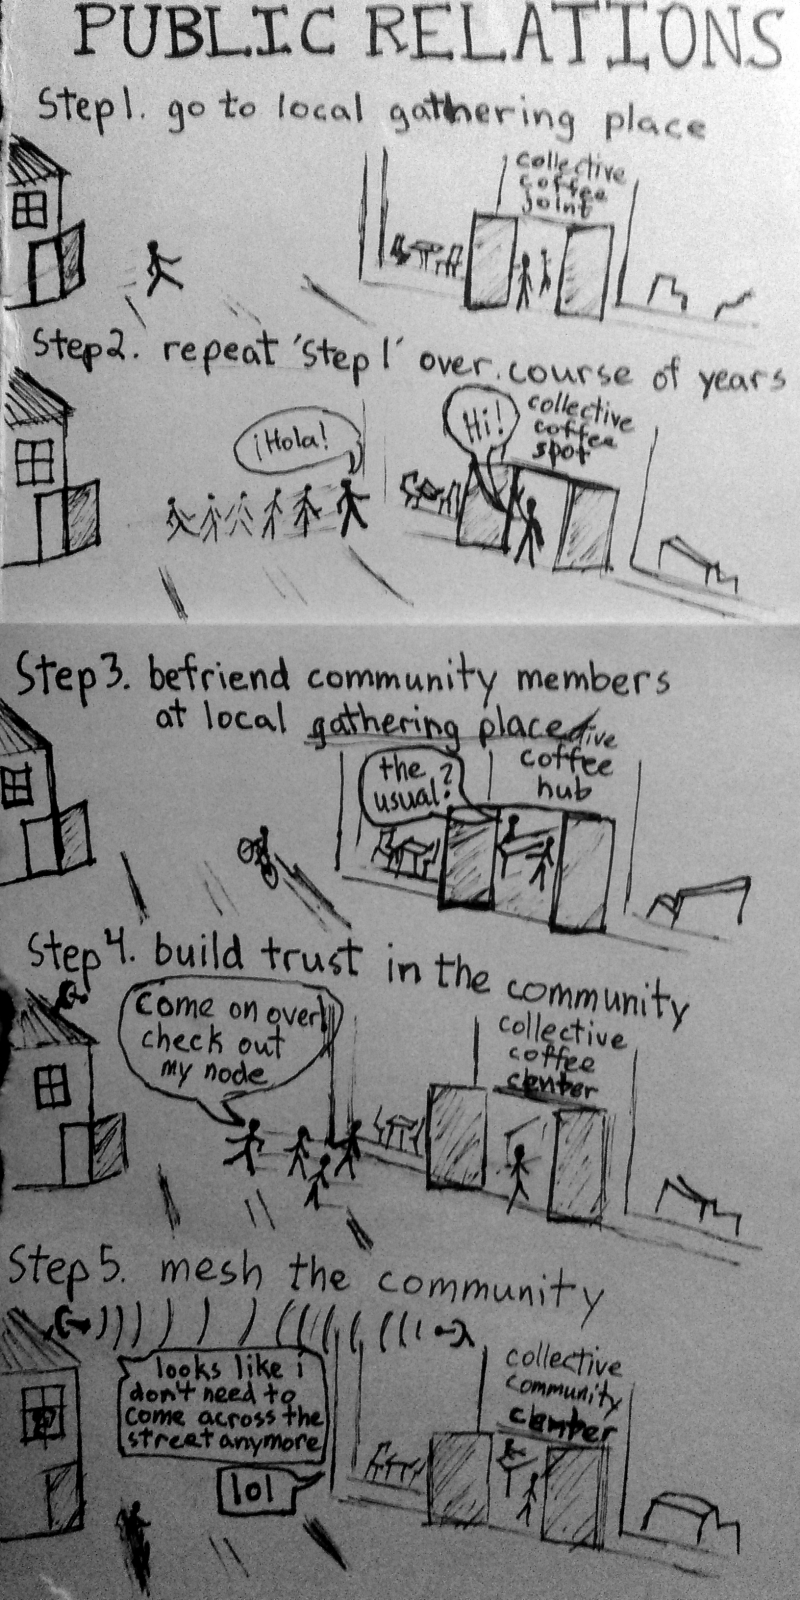 PUBLIC RELATIONS
Step 1. go to local gathering place
collective
coffee
joint
Step 2. repeat 'Step 1' over course of years
¡Hola!
Hi!
collective
coffee
spot
Step 3. befriend community members
at local gathering place
the
usual?
coffee
hub
Step 4. build trust in the community
come on over!
check out
my node
collective
coffee
center
Step 5. mesh the community
looks like i
don't need to
come across the
street anymore
lol
collective
community
center